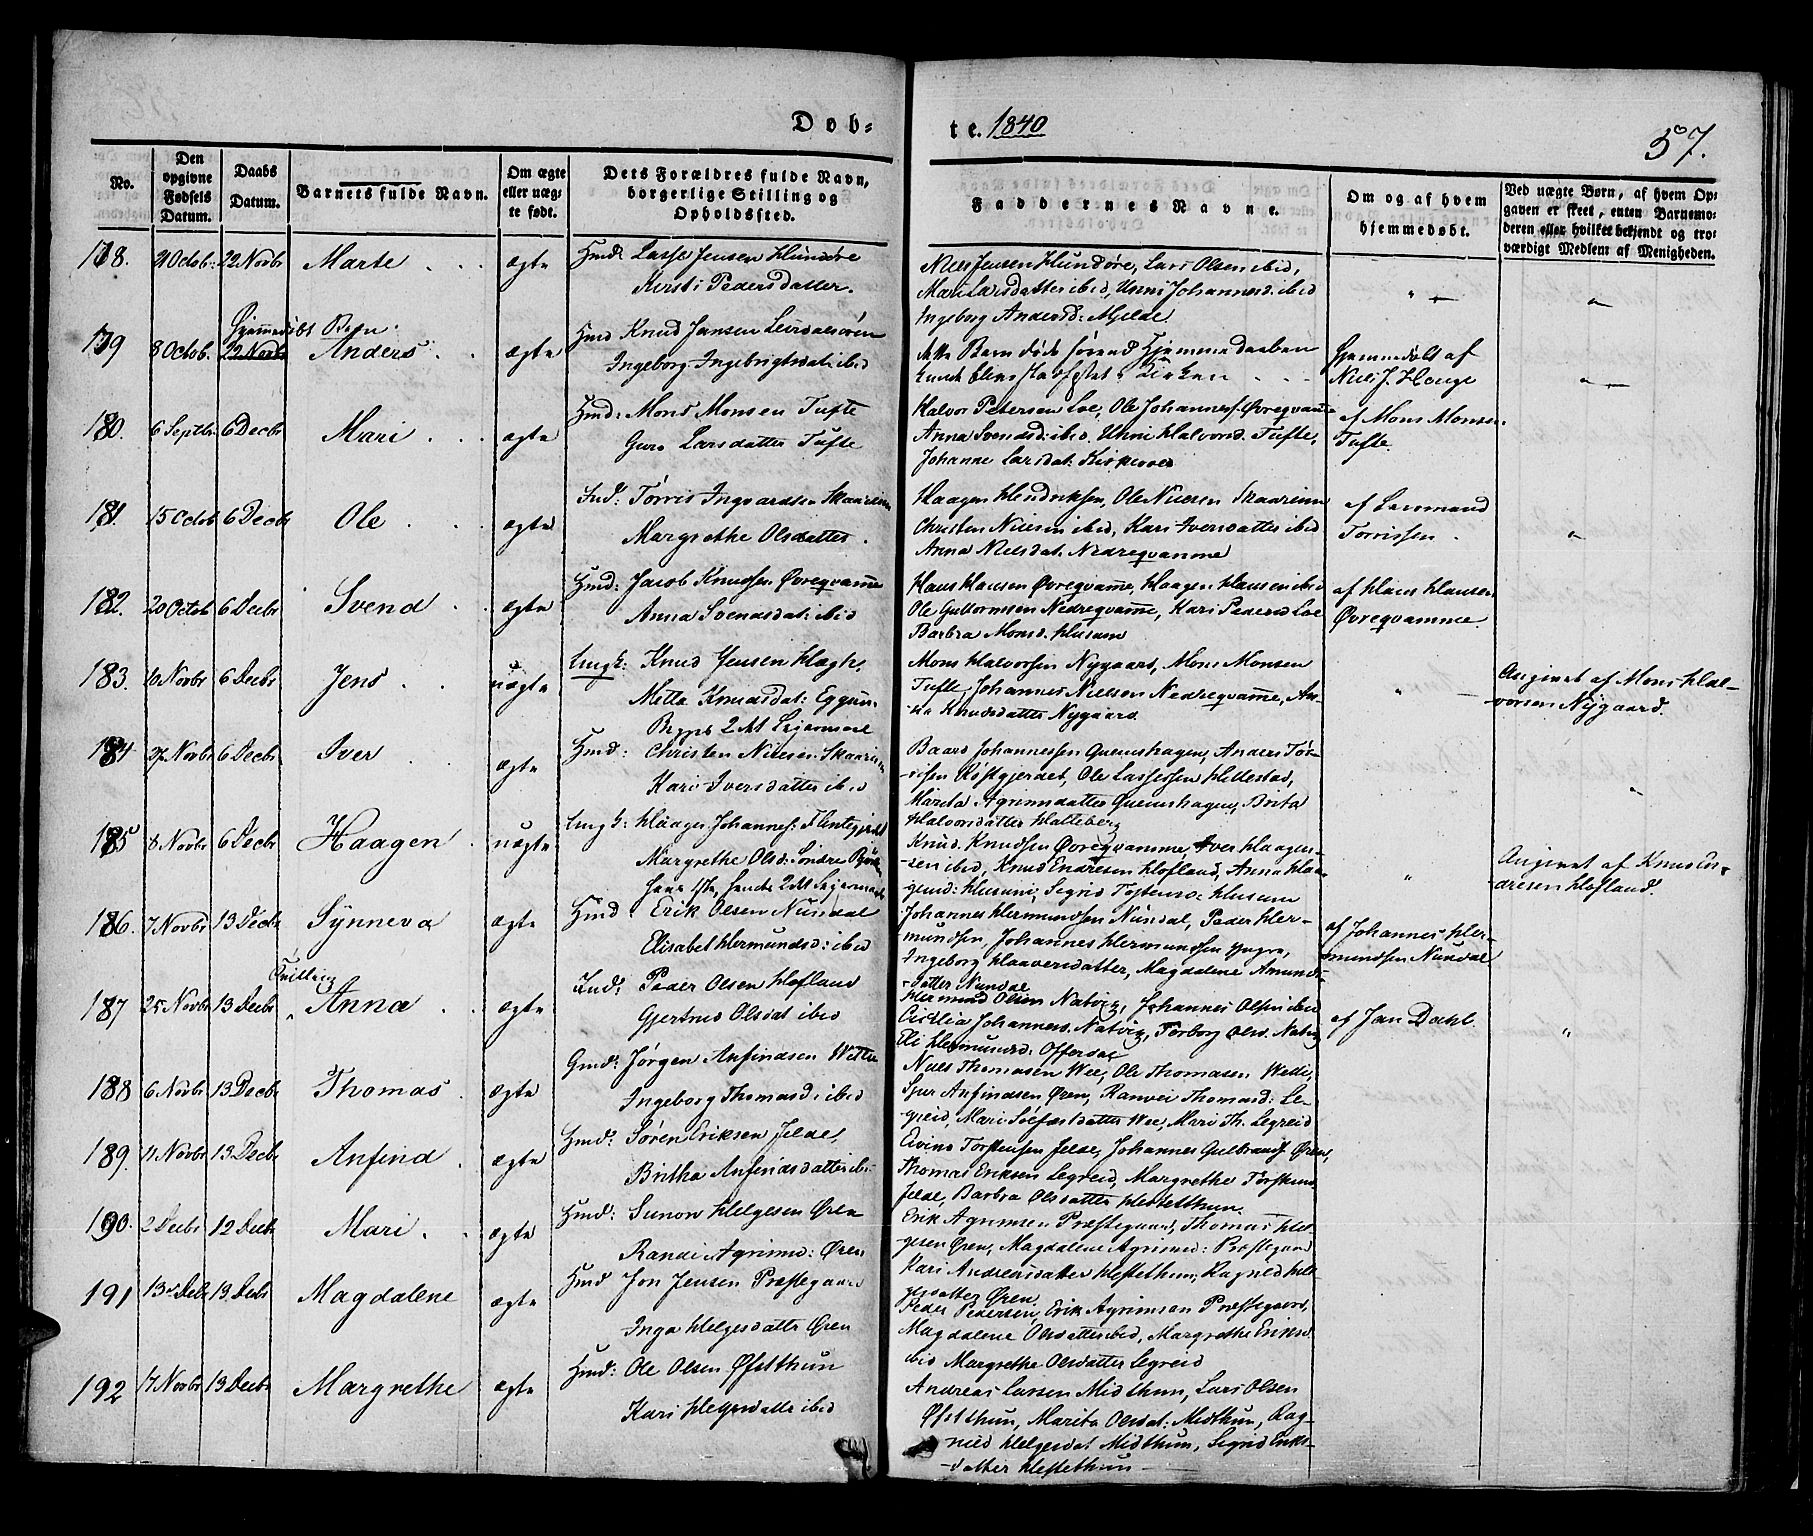 Døb-
te. 1840
57.
No.
Den opgivne Fødsels Datum.
Daabs Datum.
Barnets fulde Navn.
Om ægte eller uæg-te født.
Dets Forældres fulde Navn, borgerlige Stilling og Opholdssted.
Faddernes Navne.
Om og af hvem hjemmedøbt.
Ved uægte Børn, af hvem Op-gaven er skeet, enten Barnemo-deren eller hvilket bekjendt og tro-værdigt Medlem af Menigheden.
178. 21 Octob: 22 Novbr Marte ægte Hmd: Lasse Jensen Hundøre
Kirsti Pedersdatter.
Niels Jensen Hundøre, Lars Olsen ibid,
Mari Larsdatter ibid, Unni Johannesd: ibid
Ingeborg Andersd: Mjelde
179 8 Octob. 22 Novbr Hjemmedøbt Barn. Anders ægte Hmd Knud Jansen Leirdalsøren
Ingeborg Ingebrigtsdat: ibid
dette Barn døde førend Hjemmedaaben
kunde blive stadfæstet i Kirken
Hjemmedøbt af
Niels J. Houge
180. 6 Septbr 6 Decbr Mari ægte Hmd: Mons Monsen Tufte
Guro Larsdatter Tufte
Halvor Petersen Loe, Ole Johannes: Øvreqvamme
Anna Svendsd: ibid, Unni Halvorsd. Tufte,
Johanne Larsdat: Kirkevoll
af Mons Monsen
Tufte.
181. 15 Octob 6 Decbr Ole ægte Ind: Torris Ingvardsen Skaareim
Margrethe Olsdatter.
Haagen Hendriksen, Ole Nielsen Skaareim
Christen Nielsen ibid, Kari Iversdatter ibid
Anna Nielsdat: Nedreqvamme
af Lensmand
Torrissen.
182. 20 Octob 6 Decbr Svend ægte Hmd: Jacob Knudsen Øvreqvamme
Anna Svendsdat: ibid
Hans Hansen Øvreqvamme, Haagen Hansen ibid
Ole Guttormsen Nedreqvamme, Kari Pedersd Loe
Barbra Monsd. Husum
af Hans Hansen
Øvreqvamme.
183. 10 Novbr 6 Decbr Jens uægte Ungk: Knud Jensen Hægh,
Metta Knudsdat: Eggum.
Begges 2det Leiermaal
Mons Halvorsen Nygaard, Mons Monsen
Tufte, Johannes Nielsen Nedreqvamme, An-
na Knudsdatter Nygaard.
Angivet af Mons Hal-
vorsen Nygaard.
184 27 Novbr 6 Decbr Iver ægte Hmd: Christen Nielsen Skaareim
Kari Iversdatter ibid
Baard Johannessen Quamshagen, Anders Tor-
risen Kostgjerdet, Ole Lassessen Hellestad,
Marita Agrimsdatter Quamshagen, Brita
Halvorsdatter Halteberg
185 8 Novbr 6 Decbr Haagen uægte Ungk: Haagen Johannes: Flintegjerdet
Margrethe Olsd: Søndre
hans 1ste, hendes 2det Leiermaal
Knud Knudsen Øvreqvamme, Iver Haagen-
sen ibid, Knud Endresen Hofland, Anna Haa-
gensd: Husum, Sigrid Tostensd: Husum
Angivet af Knud En-
dresen Hofland.
186. 7 Novbr 13 Decbr Synneva ægte Hmd: Erik Olsen Nundal
Elisabet Hermundsd: ibid
Johannes Hermundsen Nundal, Peder Her-
mundsen, Johannes Hermundsen yngre,
Ingeborg Haaversdatter, Magdalene Amunds-
datter Nundal
af Johannes Her-
mundsen Nundal
187 25 Novbr 13 Decbr Tvilling Anna ægte Ind: Peder Olsen Hofland
Gjertrud Olsdat ibid
Hermund Olsen Natvig, Johannes Olsen ibid
Cicilia Johannesd. Natvig, Torborg Olsd. Natvig
Eli Hermundsd: Offerdal
af Jan Dahl.
188 6 Novbr 13 Decbr Thomas ægte Gmd: Jørgen Anfindsen Wette
Ingeborg Thomasd: ibid
Niels Thomasen Wee, Ole Thomasen Wetti,
Sjur Anfindsen Øren, Ranvei Thomasd: Le-
greid, Mari Solfæstdatter Wee, Mari Th. Legreid
189. 11 Novbr 13 Decbr Anfind ægte Hmd: Søren Eriksen Jelde,
Britha Anfindsdatter ib:
Eivind Torstensen Jelde, Johannes Gulbrands: Øren,
Thomas Eriksen Legreid, Margrethe Torstens:
Jelde, Barbra Olsdatter Hestethun.
190. 2 Decbr 12 Decbr Mari ægte Hmd: Simon Helgesen Øren
Randi Agrimsd: Øren
Erik Agrimsen Præstegaard, Thomas Hel-
gesen Øren, Magdalene Agrimsd: Præstegaard
Kari Andreasdatter Hestethun, Ragnild Hel-
gesdatter Øren
191 13 Decbr 13 Decbr Magdalene ægte Hmd Jon Jensen Præstegaard
Inga Helgesdatter Øren
Peder Pedersen, Erik Agrimsen Præstegaard,
Magdalene Olsdatter ibid, Margrethe Eriksd.
ibid Margrethe Olsdatter Legreid
192 17 Novbr 13 Decbr Margrethe ægte Hmd: Ole Olsen Øfstthun
Kari Helgesdatter ibid
Andreas Larsen Midthun, Lars Olsen
Øfstthun, Marita Olsdat: Midthun, Rag-
nild Helgesdat Midthun, Sigrid Eriks-
datter Hestethun